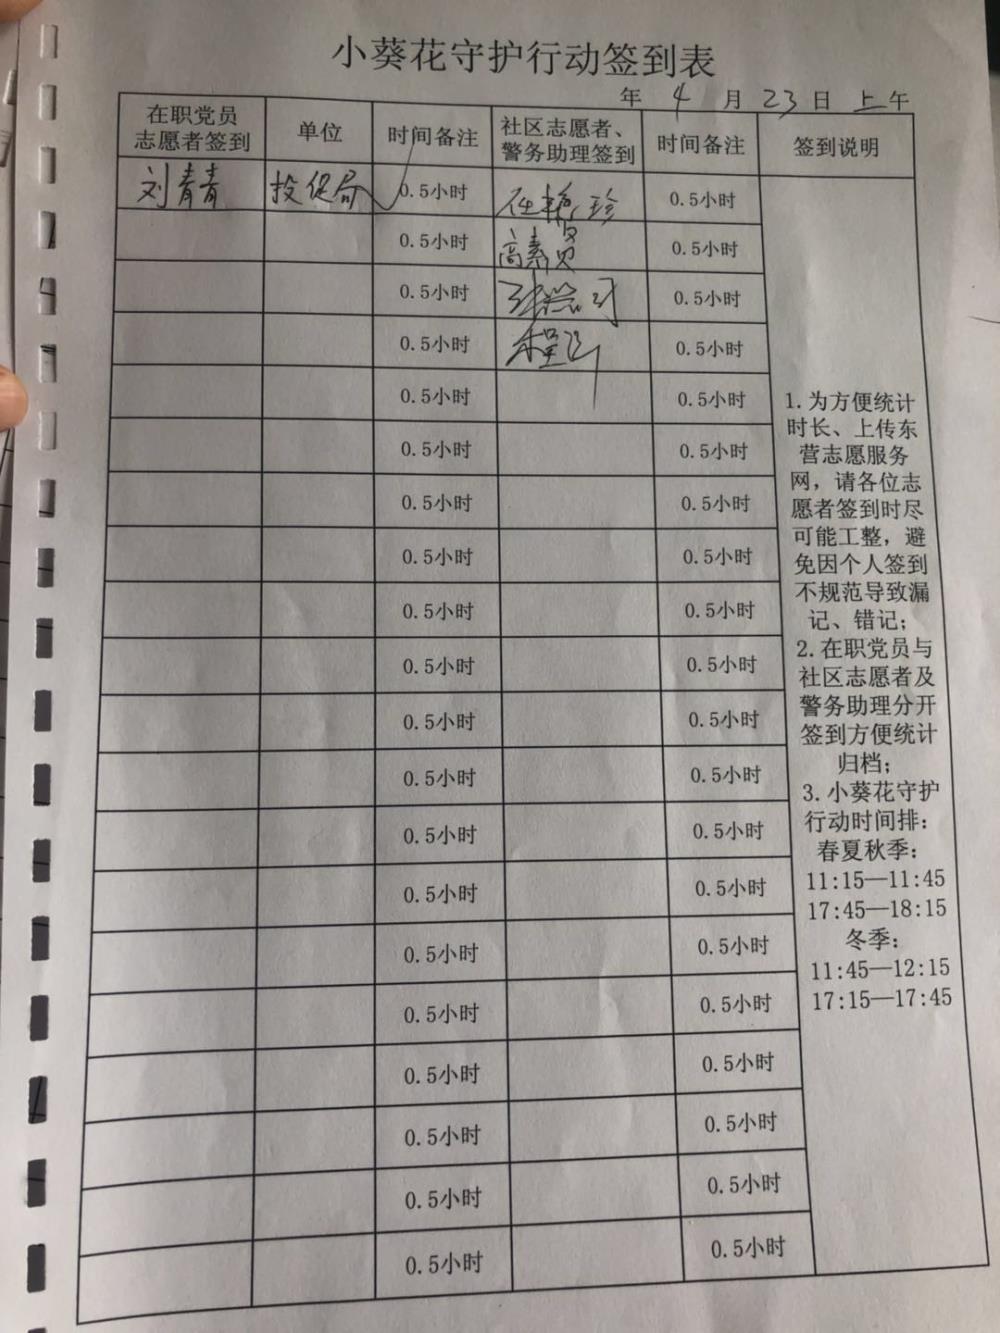 小葵花守护行动签到表
年 4 月 23 日 上午
在职党员
志愿者签到
单位
时间备注
社区志愿者、
警务助理签到
时间备注
签到说明
刘青青 投促局 0.5小时 任艳珍 0.5小时
0.5小时 高素员 0.5小时
0.5小时 0.5小时
0.5小时 程 0.5小时
0.5小时 0.5小时
0.5小时 0.5小时
0.5小时 0.5小时
0.5小时 0.5小时
0.5小时 0.5小时
0.5小时 0.5小时
0.5小时 0.5小时
0.5小时 0.5小时
0.5小时 0.5小时
0.5小时 0.5小时
0.5小时 0.5小时
0.5小时 0.5小时
0.5小时 0.5小时
0.5小时 0.5小时
0.5小时 0.5小时
0.5小时 0.5小时
1.为方便统计
时长、上传东
营志愿服务
网，请各位志
愿者签到时尽
可能工整，避
免因个人签到
不规范导致漏
记、错记；
2.在职党员与
社区志愿者及
警务助理分开
签到方便统计
归档；
3.小葵花守护
行动时间排：
春夏秋季：
11:15—11:45
17:45—18:15
冬季：
11:45—12:15
17:15—17:45